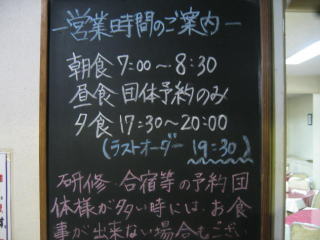 ー営業時間のご案内ー
朝食 7:00〜8:30
昼食 団体予約のみ
夕食 17:30〜20:00
(ラストオーダー 19:30)
研修・合宿等の予約団
体様が多い時には、お食
事が出来ない場合もござい